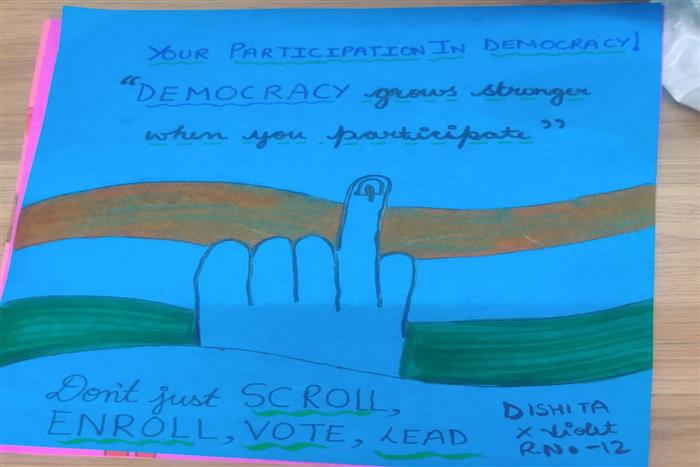 YOUR PARTICIPATION IN DEMOCRACY!
"DEMOCRACY grows stronger
when you participate"
Don't just SCROLL,
ENROLL, VOTE, LEAD
DISHITA
X Violet
R.No-12